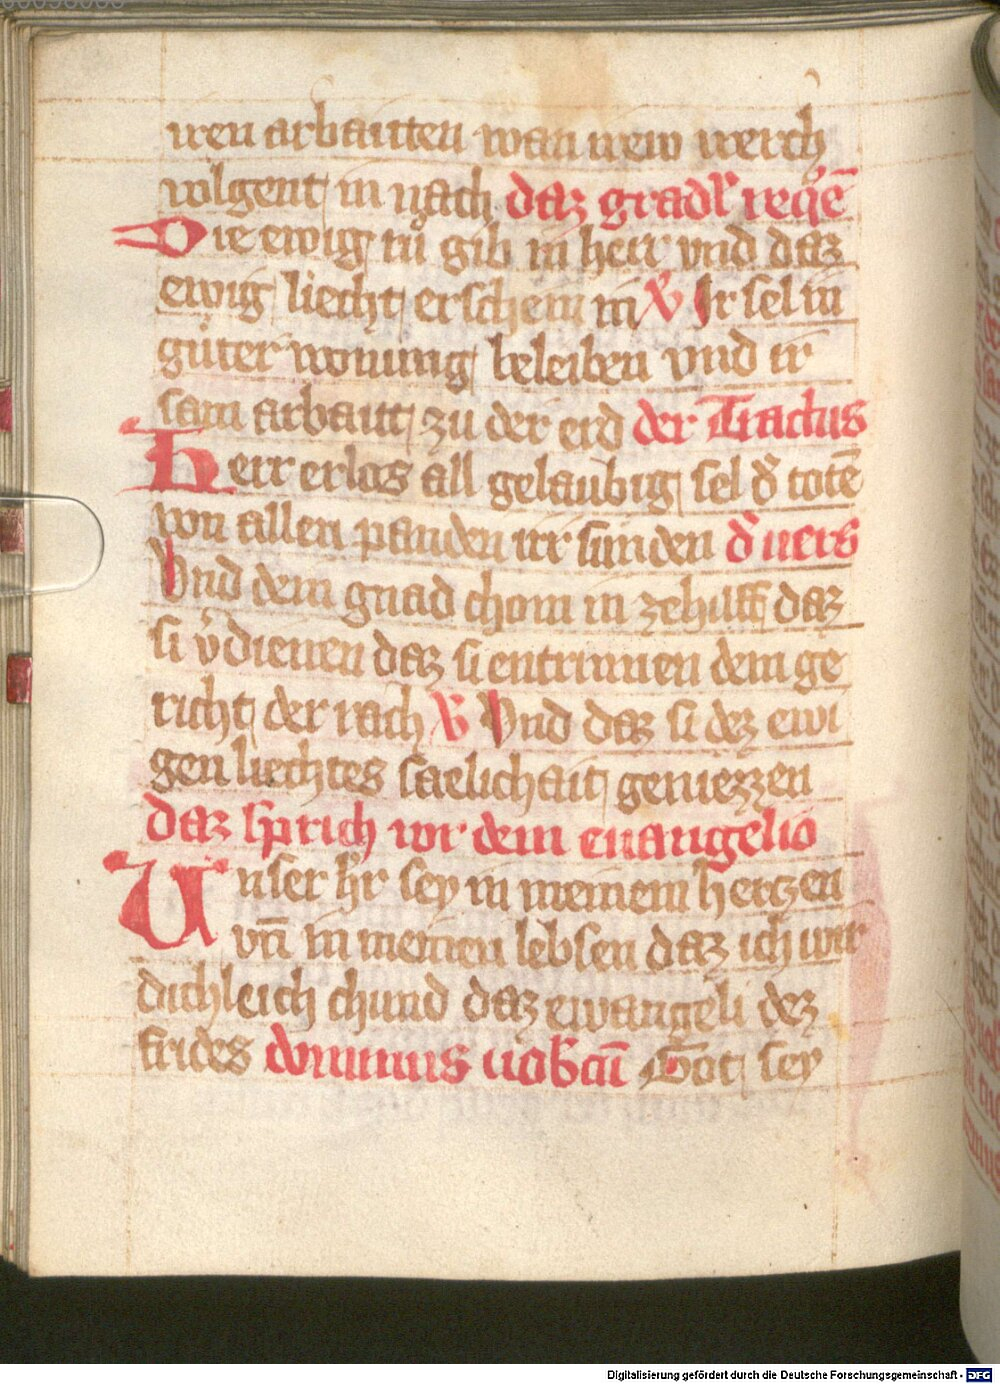 iren arbaitten wan irew werch
volgent in nach daz gradl reqē
Die ewig rů gib in herr vnd daz
ewig liecht erschein in V Ir sel in
gůter wonung beleiben vnd ir
sam arbait zu der erd der Tractus
Herr erlos all gelaubig sel d̕ totē
von allen panden irr sunden d̕ uers
Vnd dein gnad chom in zehilff daz
si v̕dienen daz si entrinnen dem ge
richt der rach V Vnd daz si dez ewi
gen liechtes saelichait geniezzen
daz sprich vor dem euangelio
Unser hr̄ sey in meinem hertzen
vn̄ in meinen lebsen daz ich wir
dichleich chund daz ewangeli dez
frides dominus uobcū Got sey
Digitalisierung gefördert durch die Deutsche Forschungsgemeinschaft - DFG